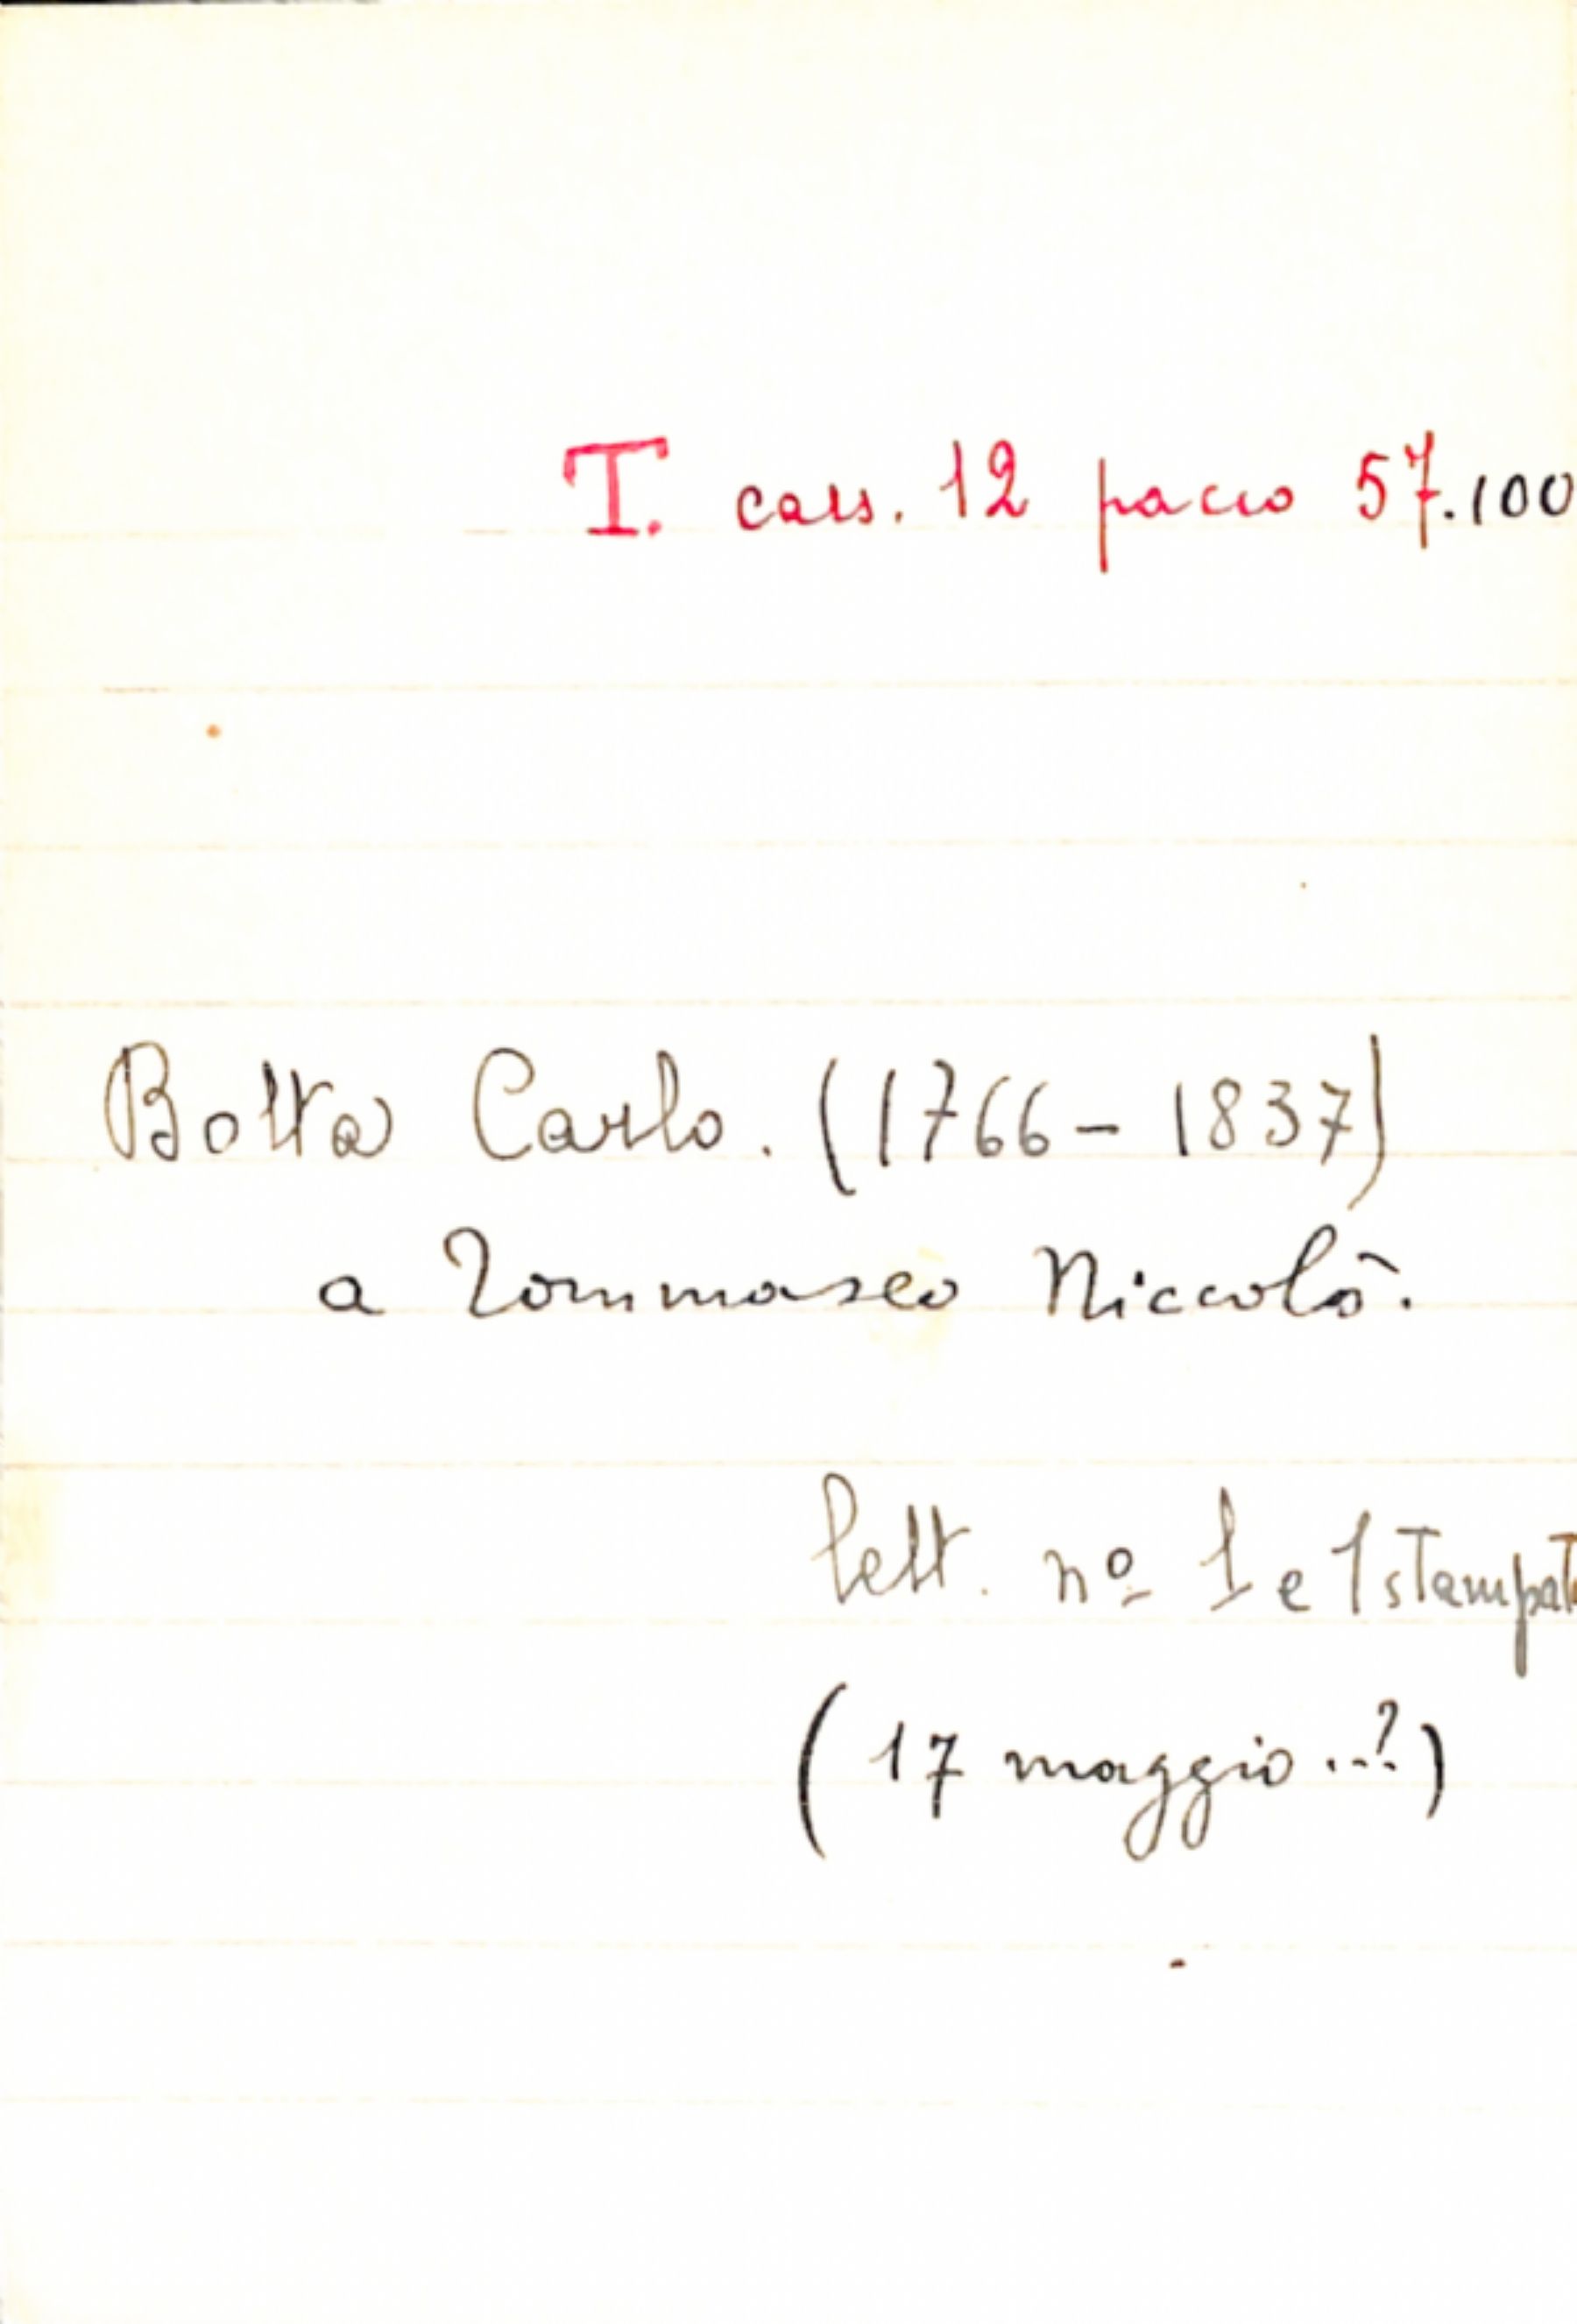 T. cass. 12 pacco 57.100
Botta Carlo. (1766-1837)
a Tommaseo Niccolò.
lett. nº 1 e 1 stampat
(17 maggio..?)